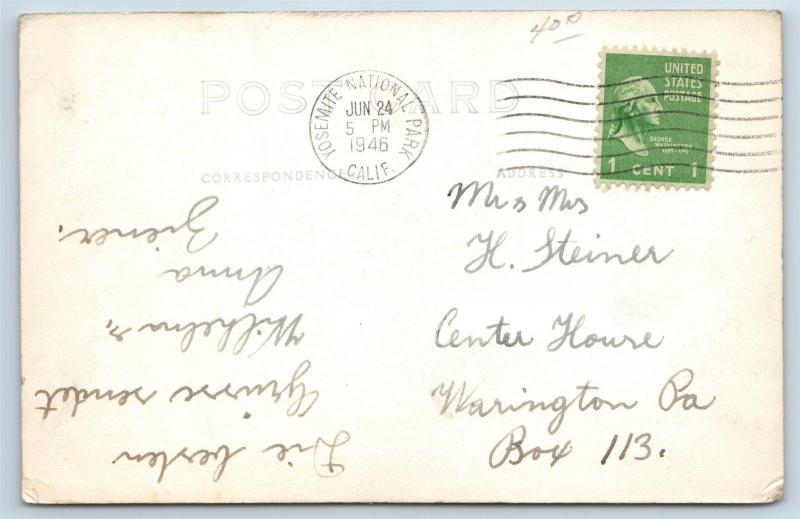 40 00
POST CARD
YOSEMITE NATIONAL PARK
JUN 24
5 PM
1946
CALIF.
UNITED
STATES
POSTAGE
GEORGE
WASHINGTON
1 CENT 1
CORRESPONDENCE
ADDRESS
Mr s Mrs
H. Steiner
Center House
Warington Pa
Box 113.
Die besten
Grüsse sendet
Wilhelm &
Anna
Ziener.